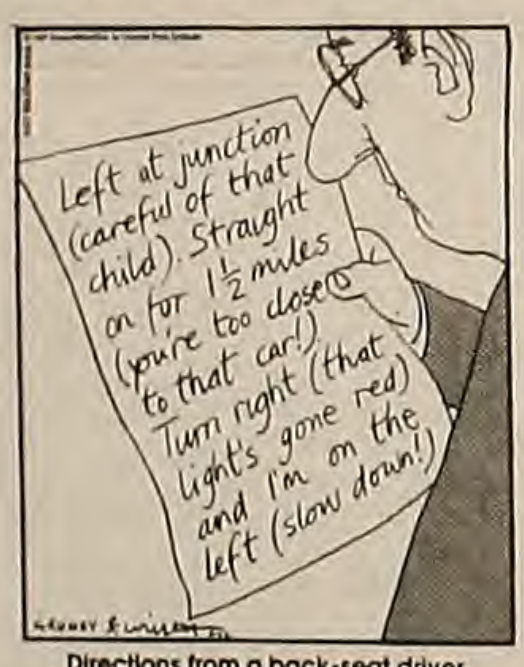 Left at junction
(careful of that
child). Straight
on for 1½ miles
(you're too close
to that car!).
Turn right (that
light's gone red)
and I'm on the
left (slow down!)
Directions from a back-seat driver